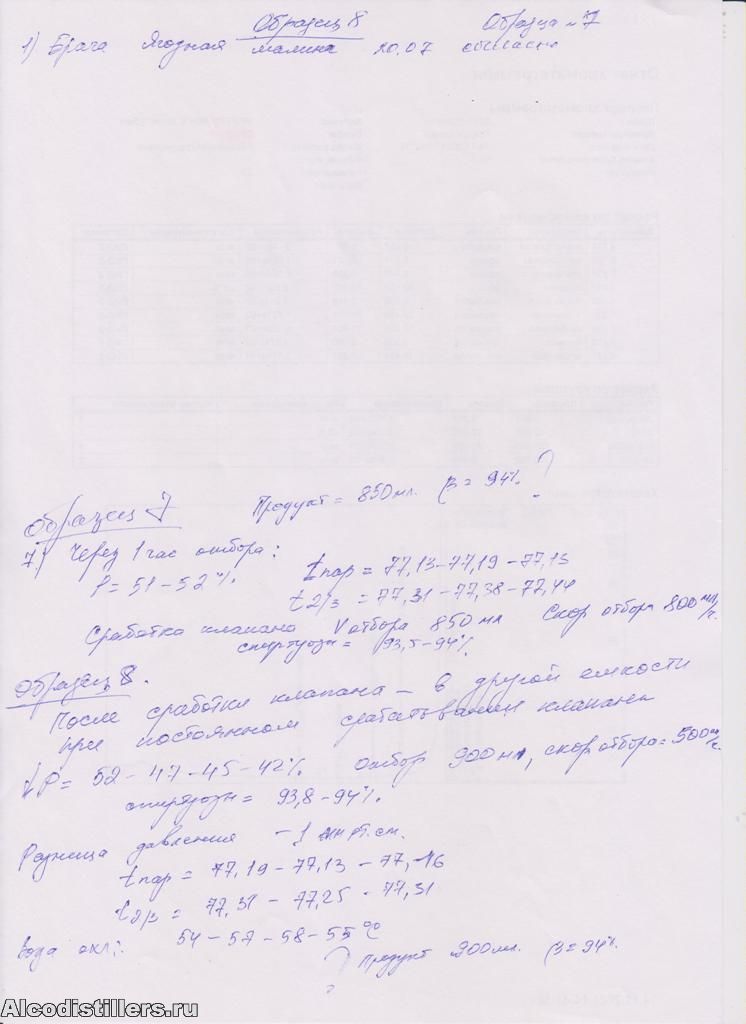 Образец 8 Образца №7
1) Брага Ягодная малина 20.07 согласно
Образец 7 Продукт = 850 мл. β = 94%. ?
7) Через 1 час отбора:
P = 51-52%. tпар = 77,13-77,19-77,13
t2/3 = 77,31-77,38-77,44
Сработка клапана Vотбора 850 мл Скор отбора 800 мл/ч.
спиртуозн = 93,5-94%.
Образец 8.
После сработки клапана - в другой емкости
при постоянном срабатывании клапана
↓P = 52-47-45-42%. Отбор 900 мл, скор отбора = 500 мл/ч.
спиртуозн = 93,8-94%.
Разница давления -1 мм рт.ст.
tпар = 77,19-77,13-77,16
t2/3 = 77,31-77,25-77,31
Вода охл: 54-57-58-55 °C
? Продукт 900 мл. β = 94%.
Alcodistillers.ru